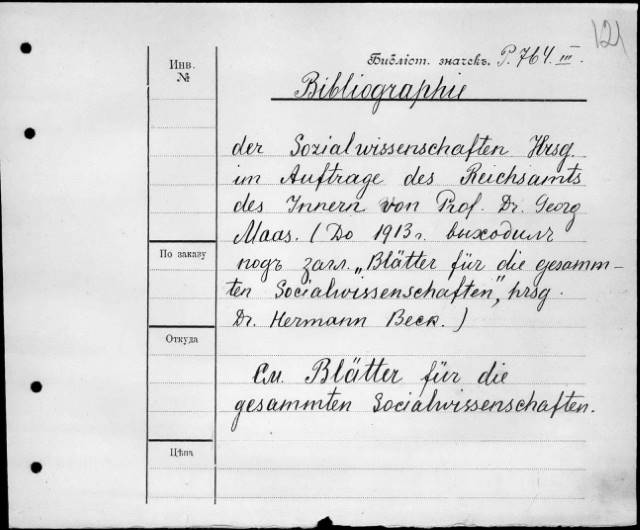 121
Библіот. значекъ. P. 764. III.
Инв.
№
Bibliographie
der Sozialwissenschaften Hrsg.
im Auftrage des Reichsamts
des Innern von Prof. Dr. Georg
Maas. (До 1913 г. выходилъ
По заказу
подъ загл. „Blätter für die gesamm-
ten Socialwissenschaften", hrsg.
Dr. Hermann Beck.)
Откуда
См. Blätter für die
gesammten Socialwissenschaften.
Цѣна